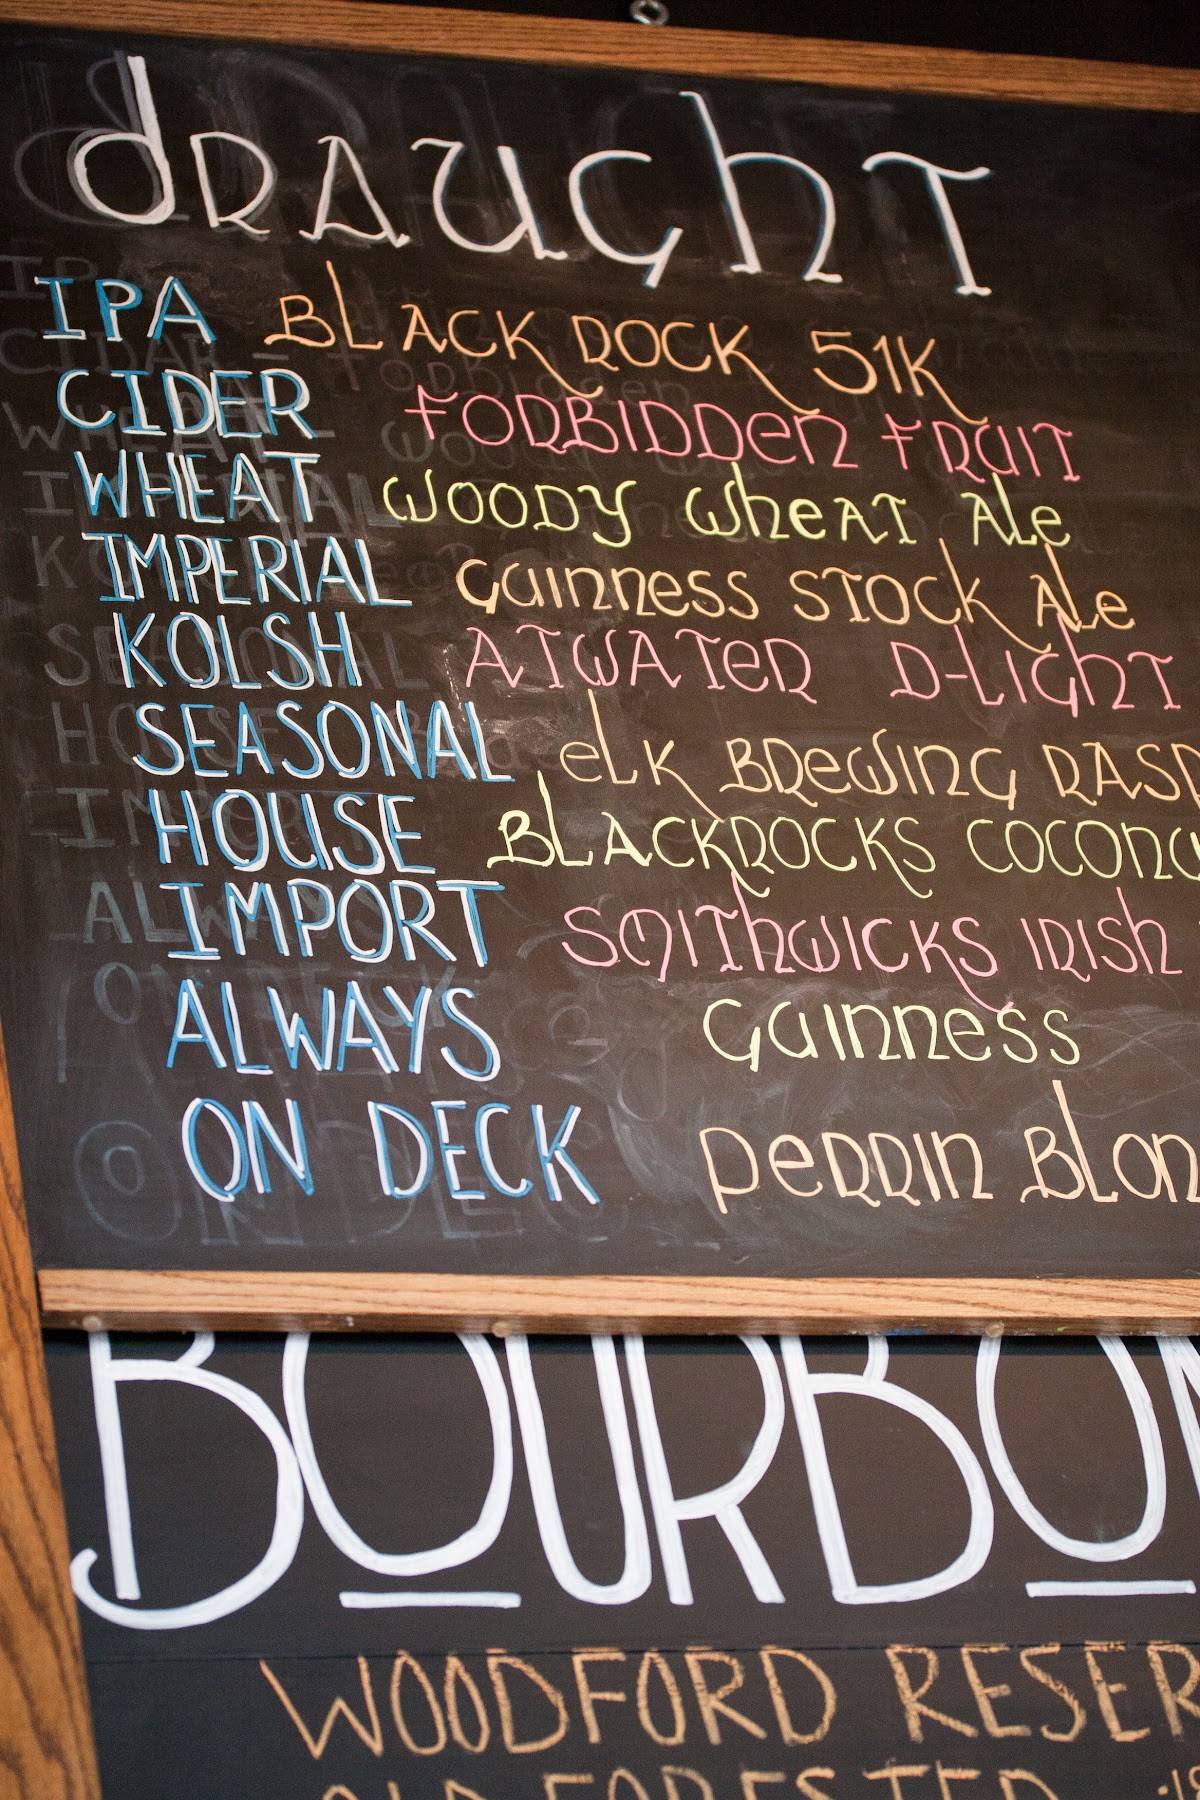 draught
IPA BLACK ROCK 51K
CIDER FORBIDDEN FRUIT
WHEAT WOODY WHEAT ALE
IMPERIAL GUINNESS STOCK ALE
KOLSH ATWATER D-LIGHT
SEASONAL ELK BREWING RASP
HOUSE BLACKROCKS COCONU
IMPORT SMITHWICKS IRISH
ALWAYS GUINNESS
ON DECK PERRIN BLON
BOURBON
WOODFORD RESER
OLD FORESTER